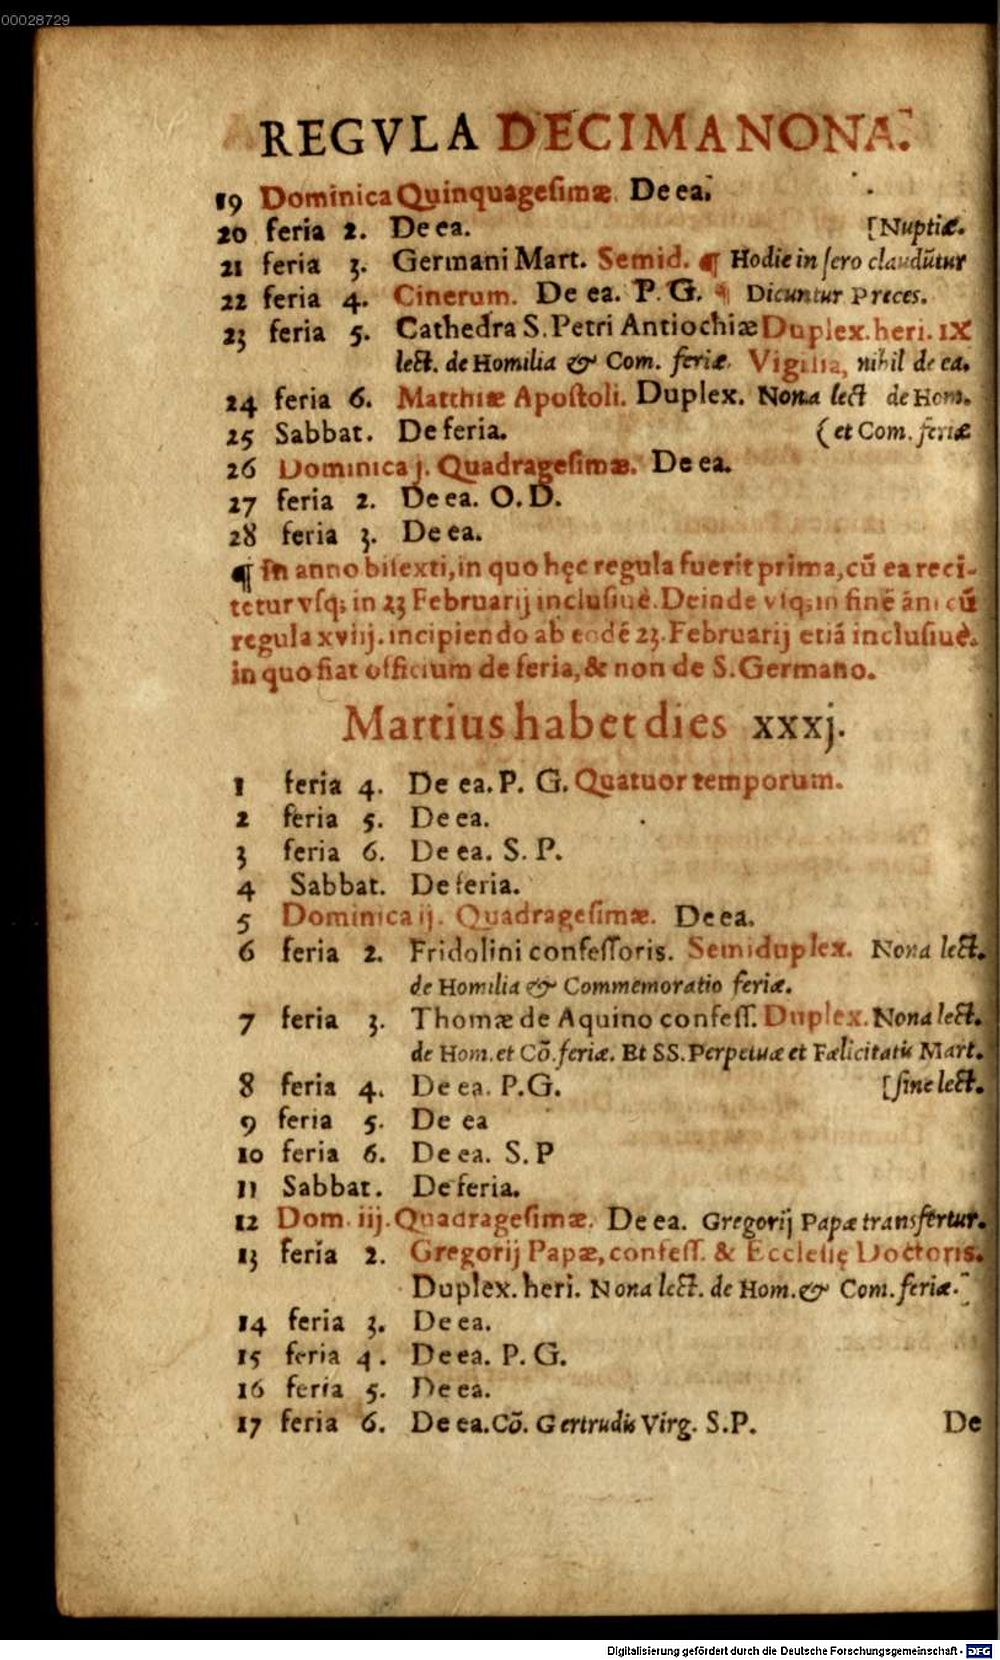 00028729
REGVLA DECIMANONA.
19 Dominica Quinquagesimæ. De ea.
20 feria 2. De ea. [Nuptiæ.
21 feria 3. Germani Mart. Semid. ¶ Hodie in sero claudūtur
22 feria 4. Cinerum. De ea. P. G. ¶ Dicuntur Preces.
23 feria 5. Cathedra S. Petri Antiochiæ Duplex. heri. IX
lect. de Homilia & Com. feriæ. Vigilia, nihil de ea.
24 feria 6. Matthiæ Apostoli. Duplex. Nona lect de Hom.
25 Sabbat. De feria. (et Com. feriæ
26 Dominica j. Quadragesimæ. De ea.
27 feria 2. De ea. O. D.
28 feria 3. De ea.
¶ In anno bisexti, in quo hęc regula fuerit prima, cū ea reci-
tetur vsq; in 23 Februarij inclusiuè. Deinde vsq; in finē āni cū
regula xviij. incipiendo ab eodē 23. Februarij etiā inclusiuè.
in quo fiat officium de feria, & non de S. Germano.
Martius habet dies xxxj.
1 feria 4. De ea. P. G. Quatuor temporum.
2 feria 5. De ea.
3 feria 6. De ea. S. P.
4 Sabbat. De feria.
5 Dominica ij. Quadragesimæ. De ea.
6 feria 2. Fridolini confessoris. Semiduplex. Nona lect.
de Homilia & Commemoratio feriæ.
7 feria 3. Thomæ de Aquino confess. Duplex. Nona lect.
de Hom. et Cō. feriæ. Et SS. Perpetuæ et Fælicitatis Mart.
8 feria 4. De ea. P. G. [sine lect.
9 feria 5. De ea
10 feria 6. De ea. S. P
11 Sabbat. De feria.
12 Dom. iij. Quadragesimæ. De ea. Gregorij Papæ transfertur.
13 feria 2. Gregorij Papæ, confess. & Ecclesię Doctoris.
Duplex. heri. Nona lect. de Hom. & Com. feriæ.
14 feria 3. De ea.
15 feria 4. De ea. P. G.
16 feria 5. De ea.
17 feria 6. De ea. Cō. Gertrudis Virg. S. P. De
Digitalisierung gefördert durch die Deutsche Forschungsgemeinschaft - DFG